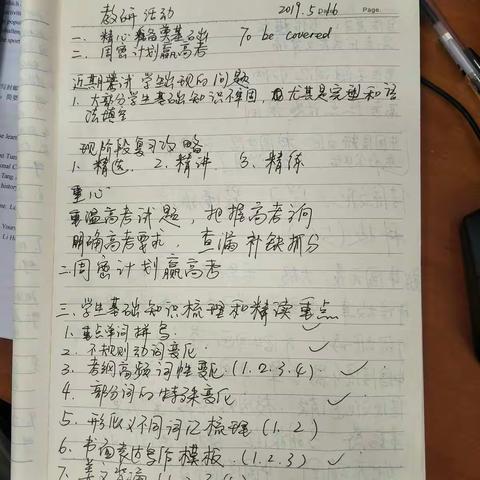 教研活动 2019.5
一、精心准备夯基础 To be covered
二、周密计划赢高考
近期考试学生出现的问题
1、大部分学生基础知识不牢固,尤其是完型和语
法填空
现阶段复习攻略
1、精选 2、精讲 3、精练
重心
重温高考试题,把握高考方向
明确高考要求,查漏补缺抓分
二、周密计划赢高考
三、学生基础知识梳理和精读重点
1、重点单词拼写
2、不规则动词变化
3、考纲高频词性变化(1.2.3.4)
4、部分词的特殊变化
5、形似义不同词汇梳理(1.2)
6、书面表达写作模板(1.2.3)
7、美文背诵